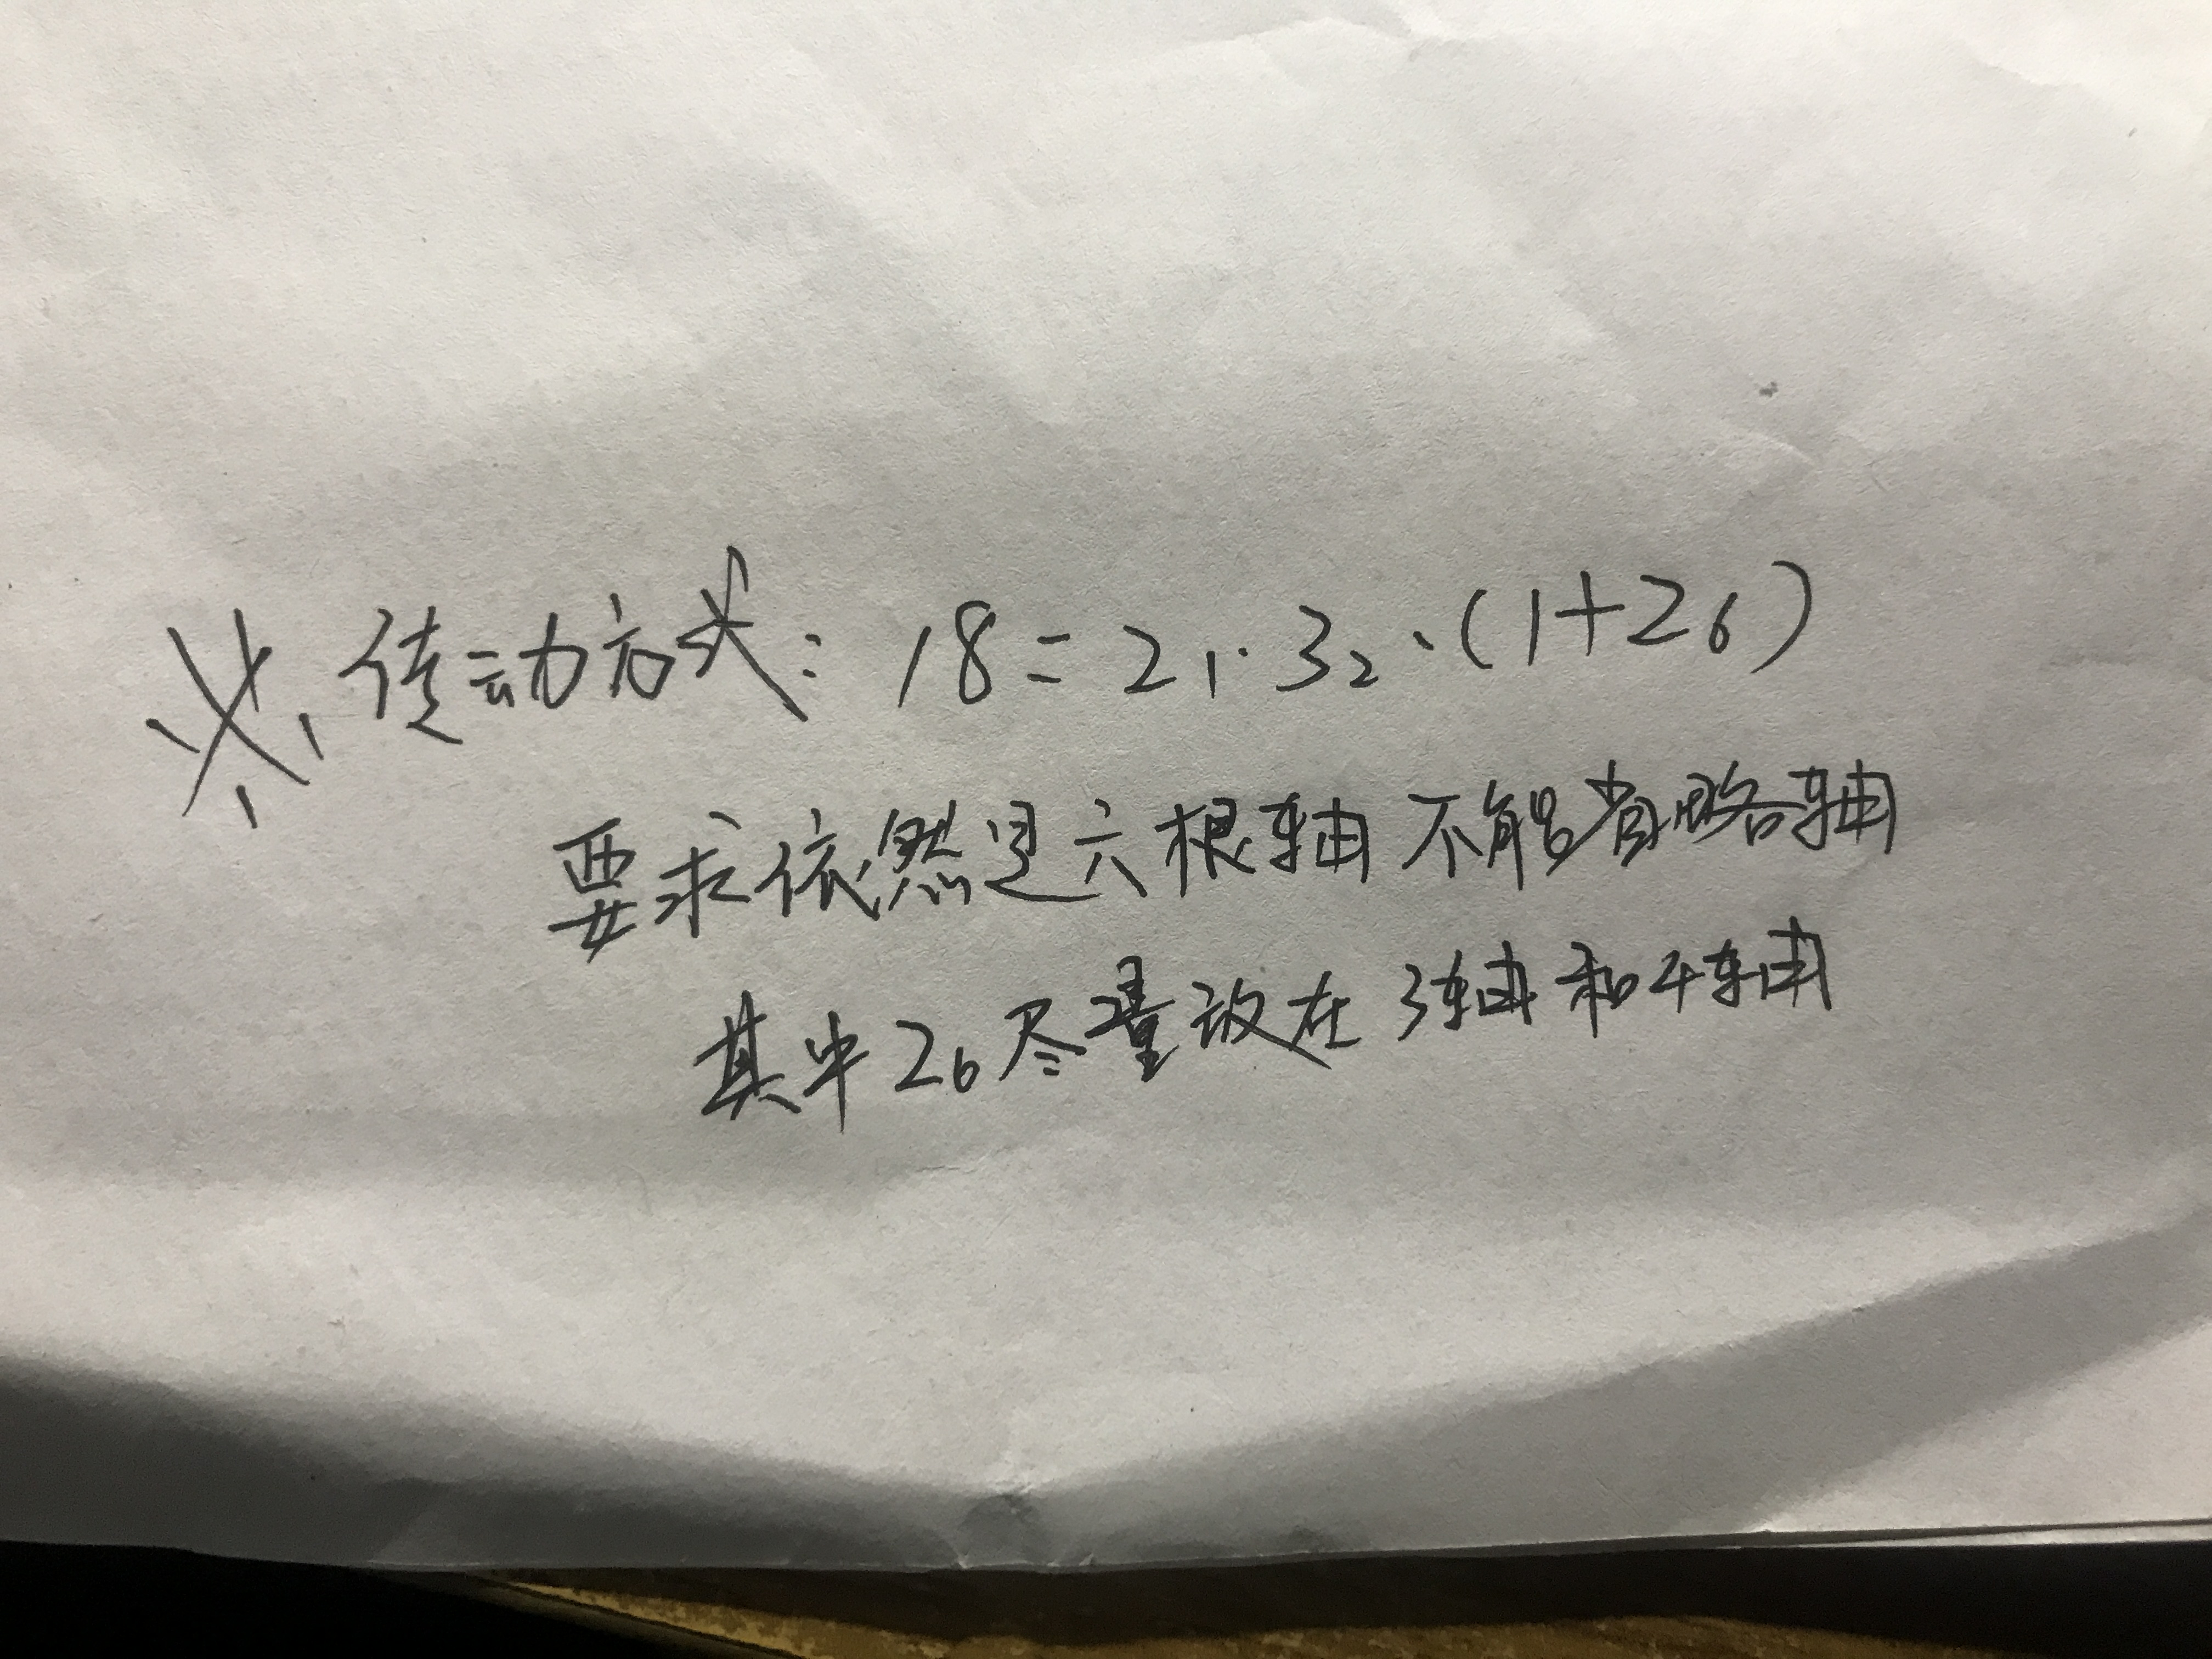 ※、传动方式：18=2₁·3₂·(1+2₆)
要求依然是六根轴 不能省略轴
其中2₆尽量放在3轴和4轴